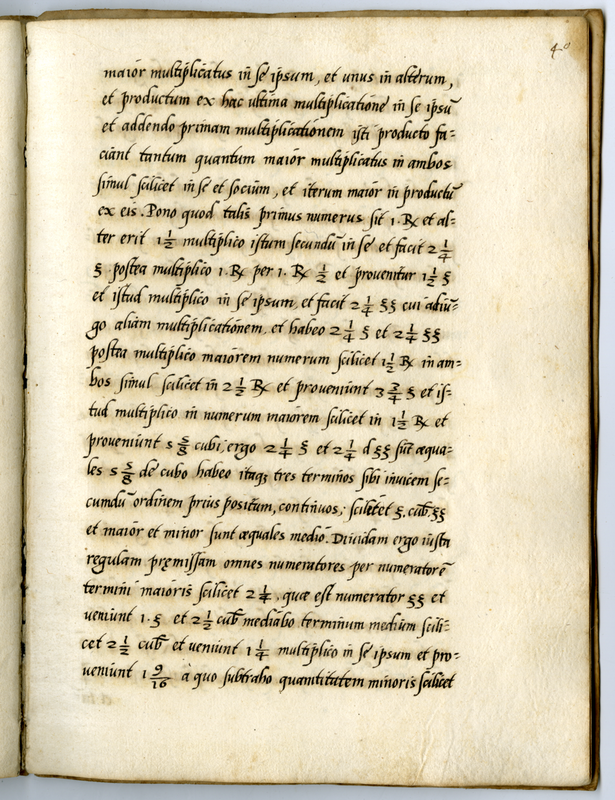 40
maior multiplicatus in se ipsum, et unus in alterum,
et productum ex hac ultima multiplicatione in se ipsū
et addendo primam multiplicationem isti producto fa=
ciant tantum quantum maior multiplicatus in ambos
simul scilicet in se et socium, et iterum maior in productū
ex eis. Pono quod talis primus numerus sit 1. ℞ et al=
ter erit 1 1/2 multiplico istum secundū in se et facit 2 1/4
ʒ. postea multiplico 1. ℞ per 1. ℞ 1/2 et provenitur 1 1/2 ʒ
et istud multiplico in se ipsum, et facit 2 1/4 ʒʒ cui adiū=
go aliam multiplicationem, et habeo 2 1/4 ʒ et 2 1/4 ʒʒ
postea multiplico maiorem numerum scilicet 1 1/2 ℞ in am=
bos simul scilicet in 2 1/2 ℞ et proveniunt 3 3/4 ʒ et is=
tud multiplico in numerum maiorem scilicet in 1 1/2 ℞ et
proveniunt 5 5/8 cubi, ergo 2 1/4 ʒ et 2 1/4 d ʒʒ sūt æqua=
les 5 5/8 de cubo habeo itaqȝ tres terminos sibi invicem se=
cumdū ordinem prius positum, continuos, scilicet ʒ. cub̄. ʒʒ
et maior et minor sunt æquales medio. Dividam ergo iusta
regulam præmissam omnes numeratores per numeratorē
termini maioris scilicet 2 1/4, quæ est numerator ʒʒ et
veniunt 1. ʒ et 2 1/2 cub̄ mediabo terminum medium scili=
cet 2 1/2 cub̄ et veniunt 1 1/4 multiplico in se ipsum et pro=
veniunt 1 9/16 a quo subtraho quantitatem minoris scilicet